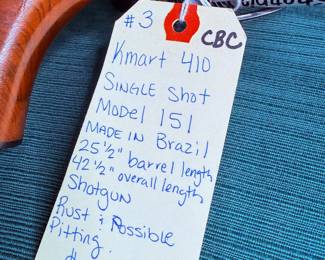 #3
CBC
Kmart 410
SINGLE SHOT
MODEL 151
MADE IN Brazil
25 1/2" barrel length
42 1/2" overall length
Shotgun
Rust & Possible
Pitting.